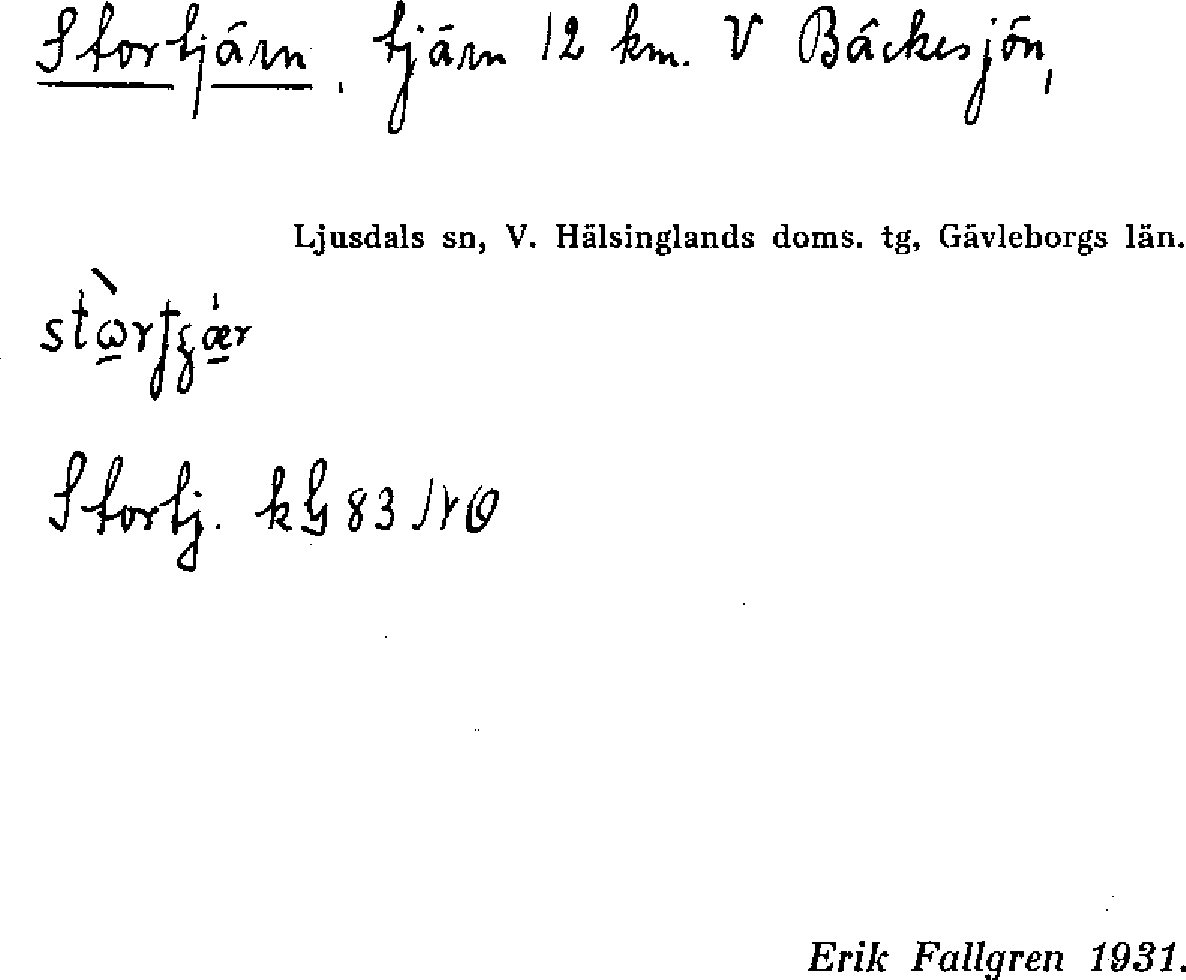 Stortjärn, tjärn 12 km. V Bäckesjön,
Ljusdals sn, V. Hälsinglands doms. tg, Gävleborgs län.
Stortj. kG 83 NO
Erik Fallgren 1931.